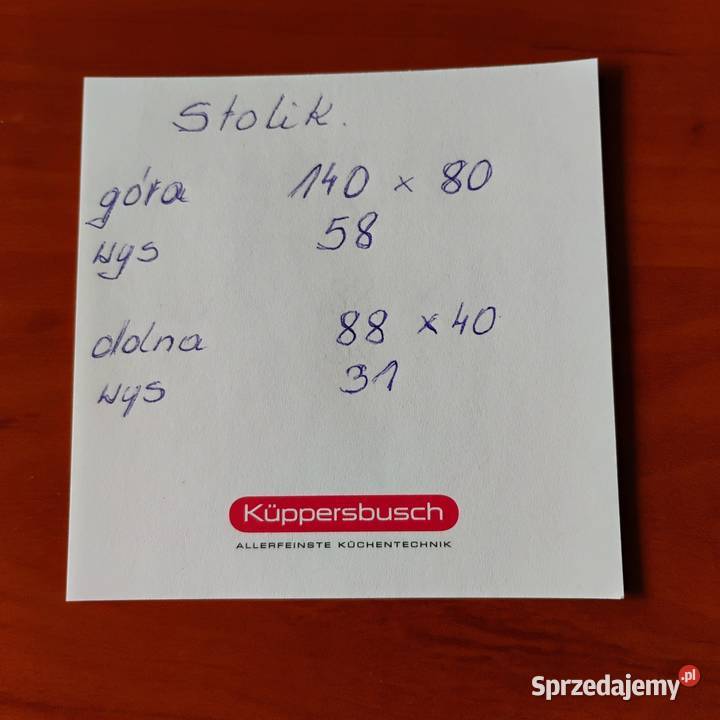 Stolik.
góra 140 x 80
wys 58
dolna 88 x 40
wys 31
Küppersbusch
ALLERFEINSTE KÜCHENTECHNIK
Sprzedajemy.pl